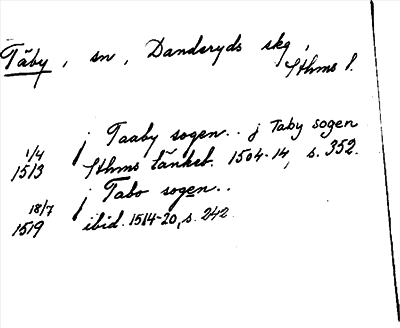 Täby, sn, Danderyds skg,
Sthms l.
j Taaby sogen.. j Taby sogen
1/4
1513 Sthms tänkeb. 1504-14, s. 352.
j Tabo sogen..
18/7
1519 ibid. 1514-20, s. 242.